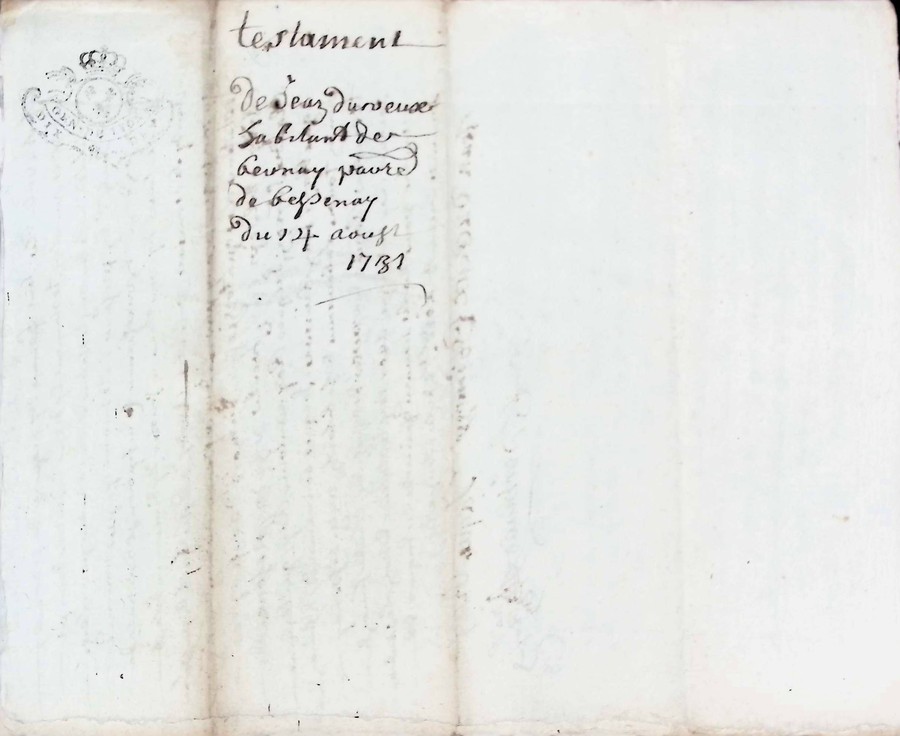 GEN DE
testament
de Jean duneveux
habitant de
bernay parre
de bessenay
du 14 aoust
1731